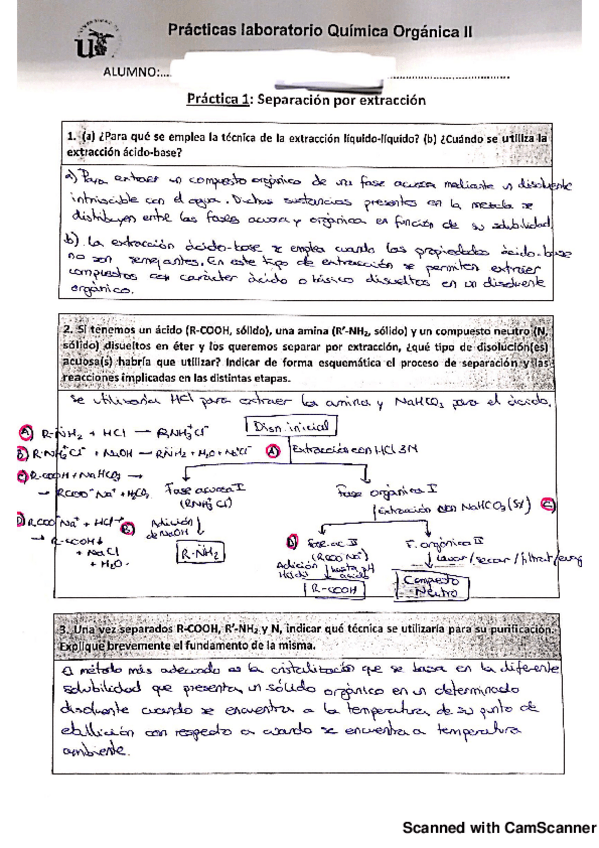 Prácticas laboratorio Química Orgánica II
ALUMNO:....
Práctica 1: Separación por extracción
1. (a) ¿Para qué se emplea la técnica de la extracción líquido-líquido? (b) ¿Cuándo se utiliza la
extracción ácido-base?
a) Para extraer un compuesto orgánico de una fase acuosa mediante un disolvente
inmiscible con el agua. Dichas sustancias presentes en la mezcla se
distribuyen entre las fases acuosa y orgánica en función de su solubilidad
b) La extracción ácido-base se emplea cuando las propiedades ácido-base
no son semejantes. En este tipo de extracción se permiten extraer
compuestos con carácter ácido o básico disueltos en un disolvente
orgánico.
2. Si tenemos un ácido (R-COOH, sólido), una amina (R'-NH₂, sólido) y un compuesto neutro (N,
sólido) disueltos en éter y los queremos separar por extracción, ¿qué tipo de disolución(es)
acuosa(s) habría que utilizar? Indicar de forma esquemática el proceso de separación y las
reacciones implicadas en las distintas etapas.
Se utilizaría HCl para extraer la amina y NaHCO₃ para el ácido.
Disn. inicial
A) R-NH₂ + HCl → RNH₃⁺Cl⁻
B) R-NH₃⁺Cl⁻ + NaOH → R-NH₂ + H₂O + Na⁺Cl⁻
A) Extracción con HCl 3N
C) R-COOH + NaHCO₃ →
→ RCOO⁻Na⁺ + H₂CO₃
Fase acuosa I
(RNH₃⁺Cl⁻)
Fase orgánica I
Extracción con NaHCO₃ (5%) C)
D) RCOO⁻Na⁺ + HCl →
→ R-COOH↓
+ NaCl
+ H₂O
B) Adición
de NaOH
R-NH₂
D) Fase ac II
(RCOO⁻Na⁺)
Adición hasta pH
HCl ácido
R-COOH
F. orgánica II
Lavar/secar/filtrar/evap
Compuesto
Neutro
3. Una vez separados R-COOH, R'-NH₂ y N, indicar qué técnica se utilizaría para su purificación.
Explique brevemente el fundamento de la misma.
El método más adecuado es la cristalización que se basa en la diferente
solubilidad que presenta un sólido orgánico en un determinado
disolvente cuando se encuentra a la temperatura de su punto de
ebullición con respecto a cuando se encuentra a temperatura
ambiente.
Scanned with CamScanner